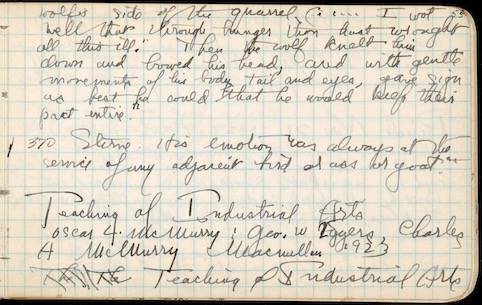 wolf's side of the quarrel, : .... I wot
well that through hunger thou hast wrought
all this ill." Then the wolf knelt him
down and bowed his head, and with gentle
movements of his body tail and eyes, gave sign
as best he could that he would keep their
pact entire."
370 Sterne. His emotion was always at the
service of any adjacent bird or ass or goat."
Teaching of Industrial Arts
Oscar L. McMurry : Geo. W Eggers, Charles
A McMurry Macmillan 1923
Teaching of Industrial Arts